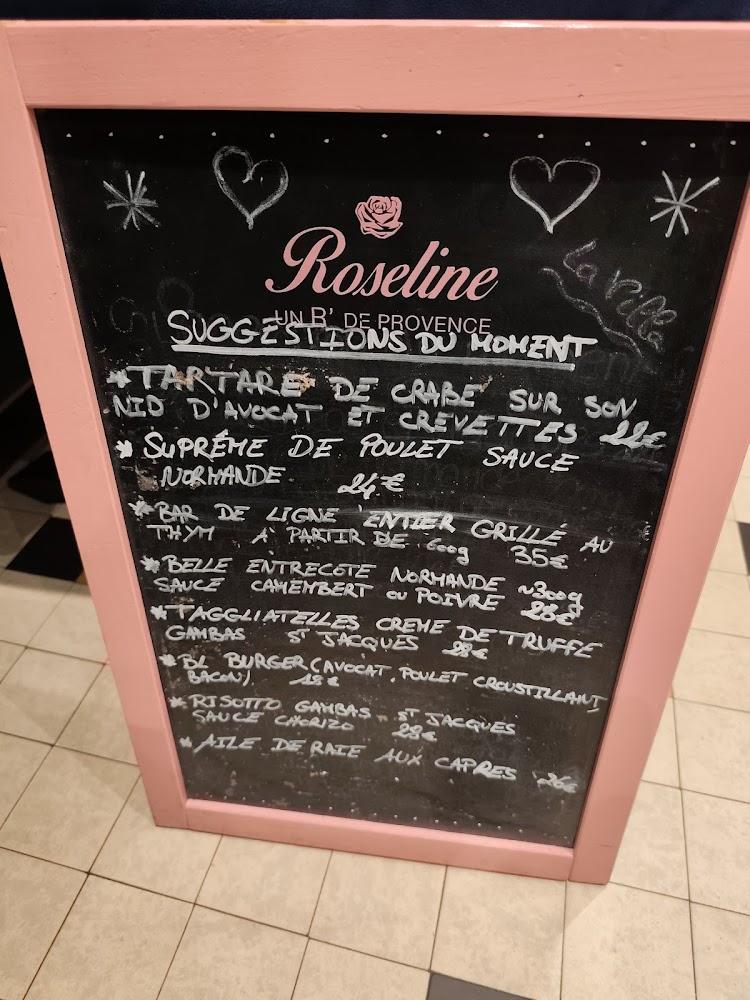 Roseline
La Villa
UN R' DE PROVENCE
SUGGESTIONS DU MOMENT
*TARTARE DE CRABE SUR SON
NID D'AVOCAT ET CREVETTES 22€
* SUPRÊME DE POULET SAUCE
NORMANDE 24€
*BAR DE LIGNE ENTIER GRILLÉ AU
THYM A PARTIR DE 600g 35€
*BELLE ENTRECOTE NORMANDE ~300g
SAUCE CAMEMBERT OU POIVRE 28€
*TAGGLIATELLES CREME DE TRUFFE
GAMBAS ST JACQUES 28€
*BL BURGER (AVOCAT, POULET CROUSTILLANT,
BACON), 18€
*RISOTTO GAMBAS - ST JACQUES
SAUCE CHORIZO 28€
*AILE DE RAIE AUX CAPRES 26€